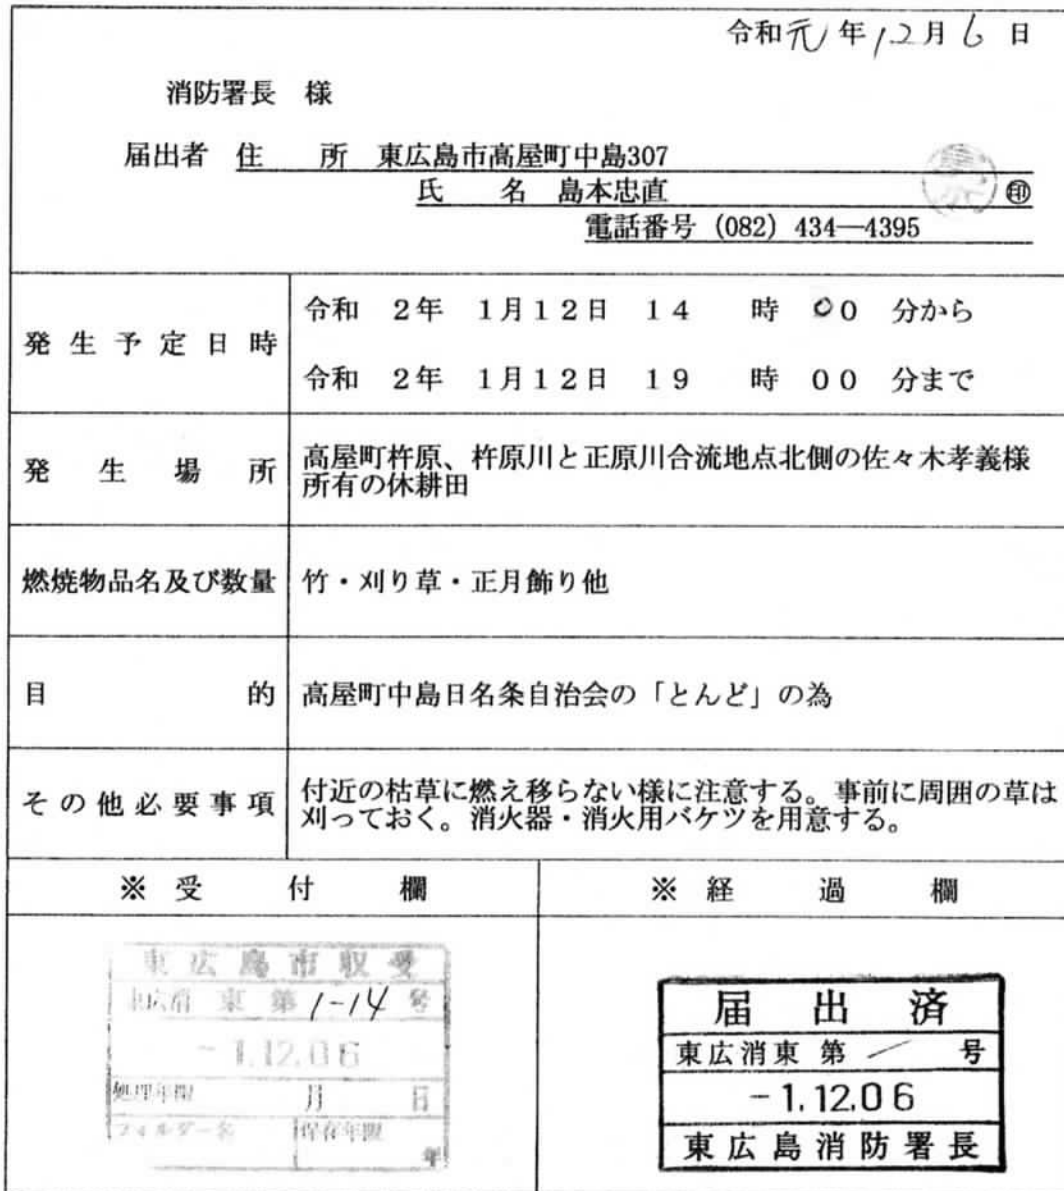 令和元年12月6日
消防署長 様
届出者 住 所 東広島市高屋町中島307
氏 名 島本忠直 ㊞
電話番号 (082) 434―4395
発生予定日時
令和 2年 1月12日 14 時 00 分から
令和 2年 1月12日 19 時 00 分まで
発生場所
高屋町杵原、杵原川と正原川合流地点北側の佐々木孝義様
所有の休耕田
燃焼物品名及び数量
竹・刈り草・正月飾り他
目的
高屋町中島日名条自治会の「とんど」の為
その他必要事項
付近の枯草に燃え移らない様に注意する。事前に周囲の草は
刈っておく。消火器・消火用バケツを用意する。
※受付欄
※経過欄
東広島市収受
東広消 東 第1-14号
-1.12.06
処理年限 月 日
フォルダー名
保存年限
年
届出済
東広消東 第 号
-1.12.06
東広島消防署長